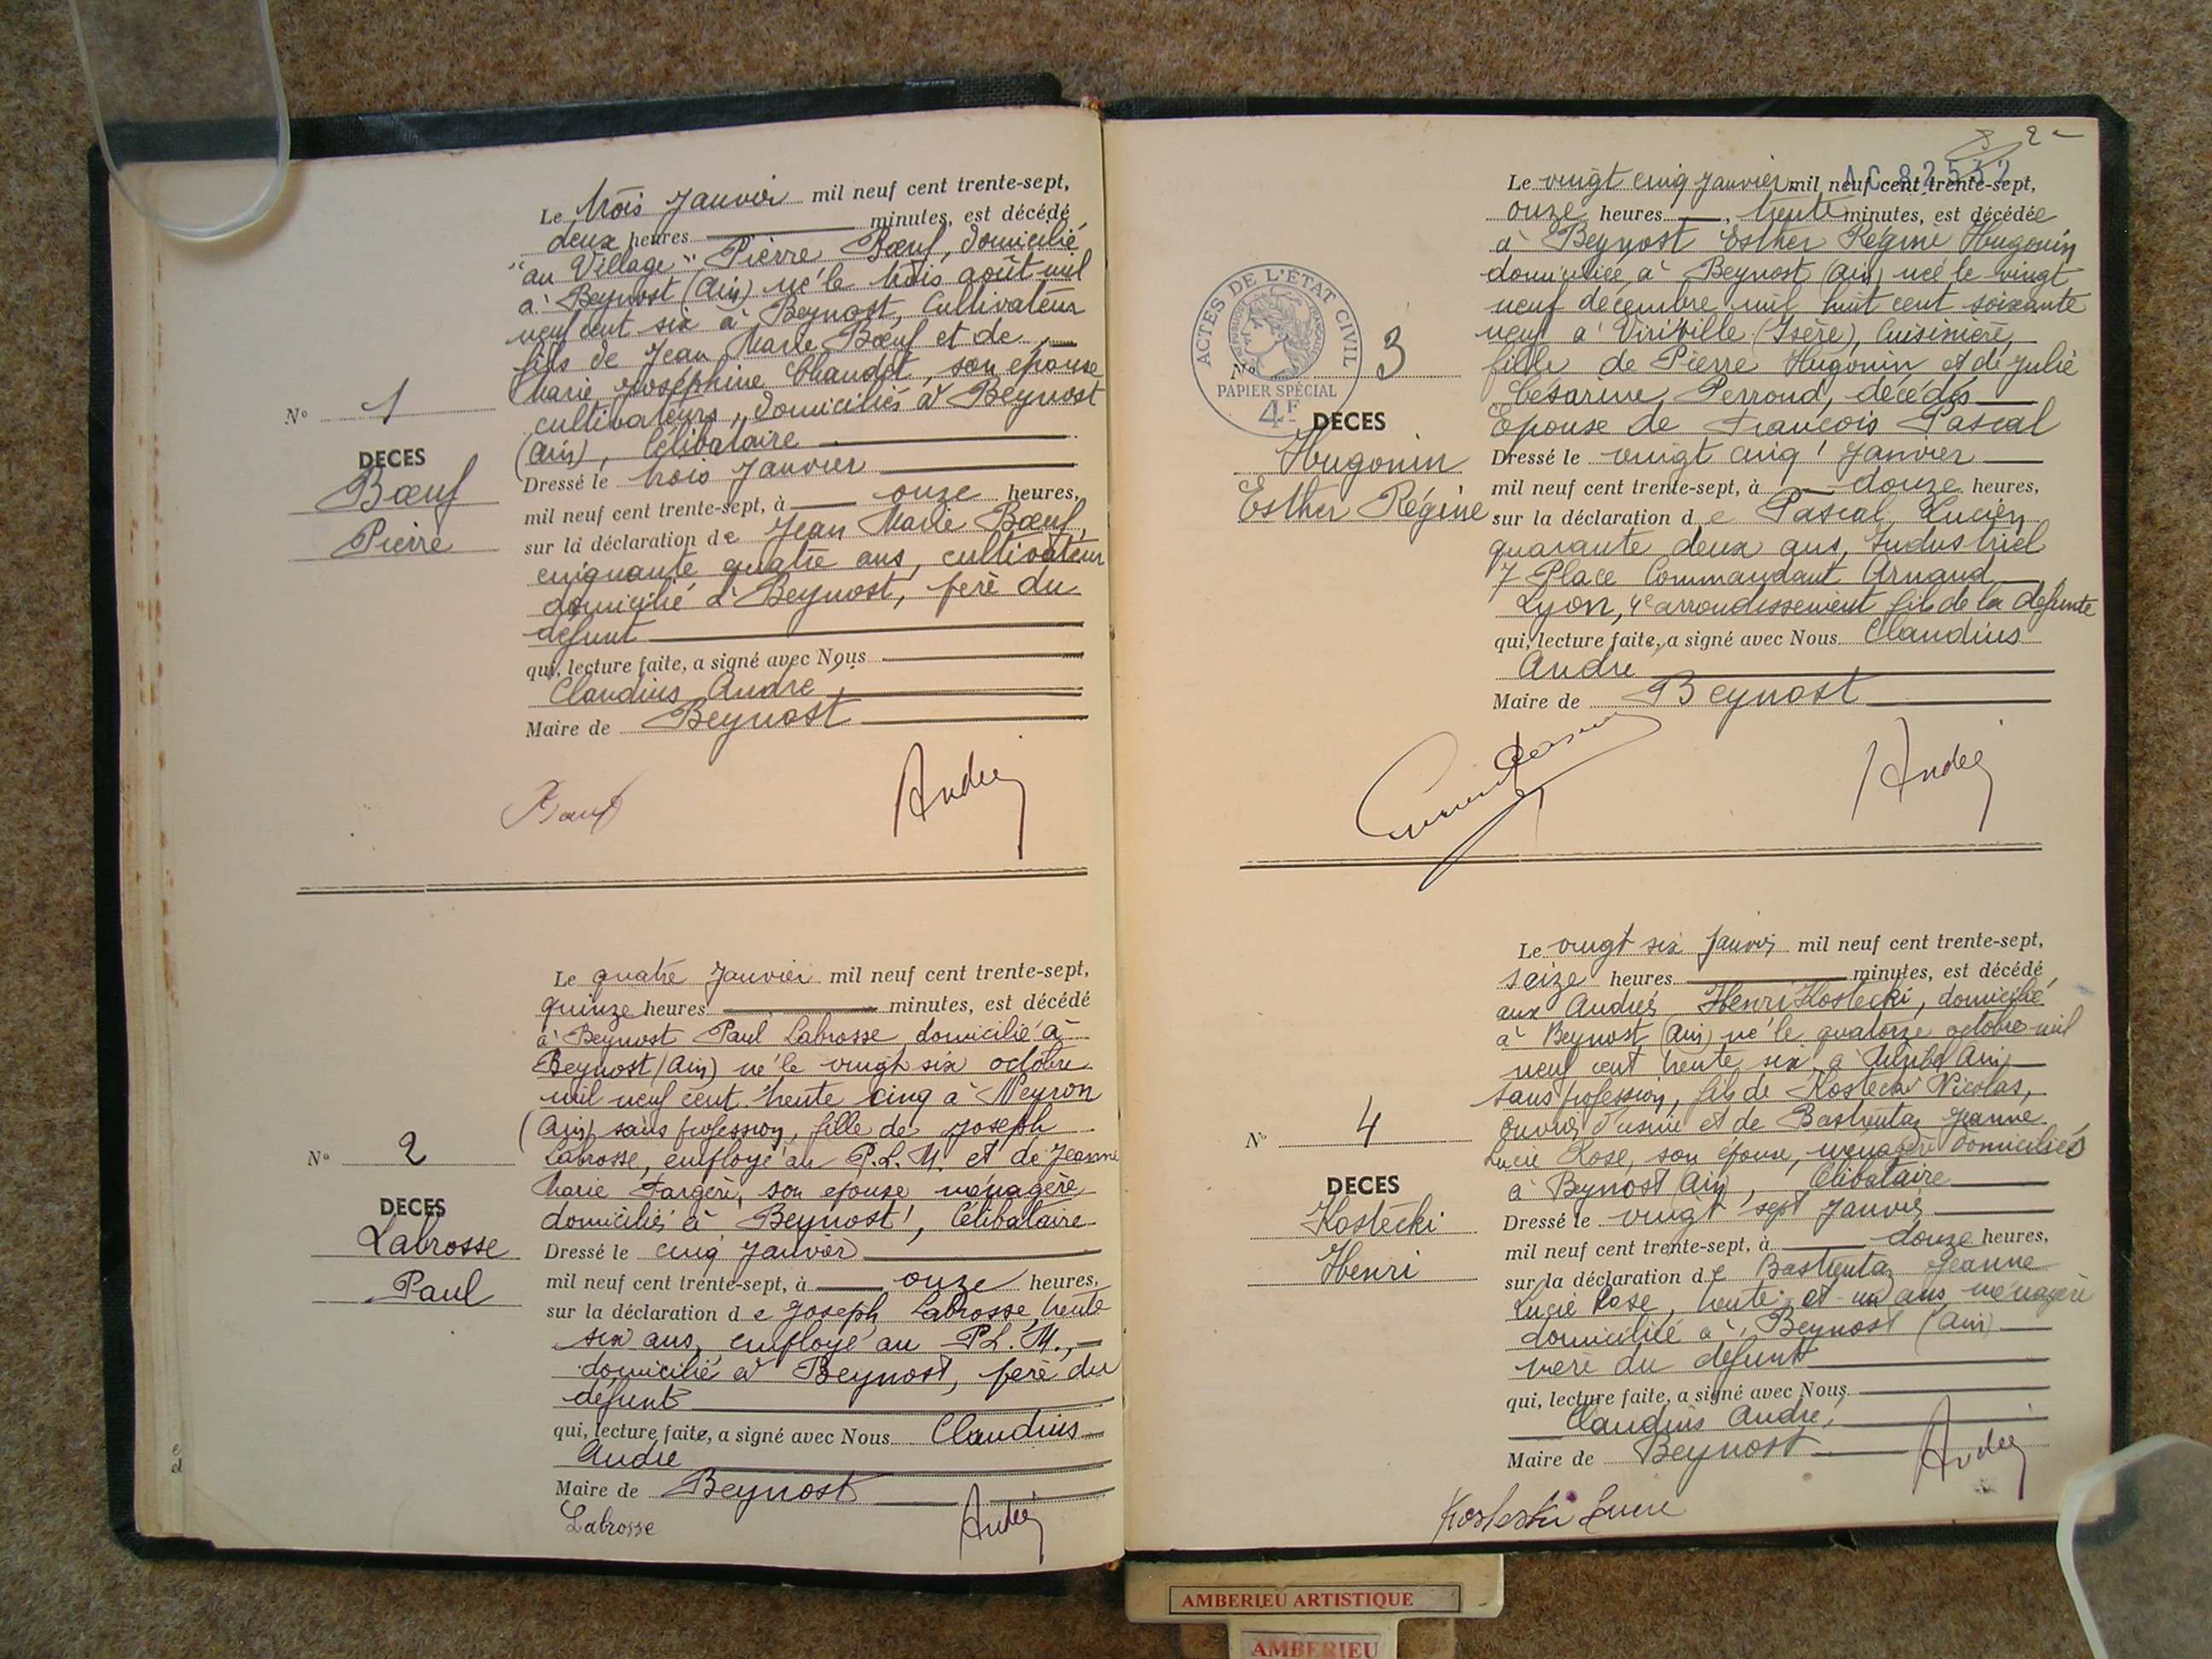 Le trois Janvier mil neuf cent trente-sept,
deux heures minutes, est décédé
"au Village" Pierre Bœuf, domicilié
à Beynost (Ain) né le trois août mil
neuf cent six à Beynost, Cultivateur
fils de Jean Marie Bœuf et de
Marie Joséphine Chaudet, son épouse
cultivateurs, domiciliés à Beynost
(Ain), Célibataire
Dressé le trois Janvier
mil neuf cent trente-sept, à onze heures,
sur la déclaration de Jean Marie Bœuf,
cinquante quatre ans, cultivateur
domicilié à Beynost, père du
défunt
qui, lecture faite, a signé avec Nous
Claudius André,
Maire de Beynost
Nº 1
DECES
Bœuf
Pierre
Bœuf
André
Le quatre Janvier mil neuf cent trente-sept,
quinze heures minutes, est décédé
à Beynost Paul Labrosse domicilié à
Beynost (Ain) né le vingt six octobre
mil neuf cent trente cinq à Neyron
(Ain) sans profession, fille de Joseph
Labrosse, employé au P.L.M. et de Jeanne
Marie Fargère, son épouse ménagère
domiciliés à Beynost, Célibataire
Dressé le cinq Janvier
mil neuf cent trente-sept, à onze heures,
sur la déclaration de Joseph Labrosse, trente
six ans, employé au P.L.M.,
domicilié à Beynost, père du
défunt
qui, lecture faite, a signé avec Nous Claudius
André
Maire de Beynost
Nº 2
DECES
Labrosse
Paul
Labrosse
André
2
AC 82532
Le vingt cinq Janvier mil neuf cent trente-sept,
onze heures, trente minutes, est décédée
à Beynost Esther Régine Hugonin
domiciliée à Beynost (Ain) née le vingt
neuf décembre mil huit cent soixante
neuf à Viriville (Isère), Cuisinière,
fille de Pierre Hugonin et de Julie
Césarine Perroud, décédés
Epouse de François Pascal
Dressé le vingt cinq Janvier
mil neuf cent trente-sept, à douze heures,
sur la déclaration de Pascal Lucien
quarante deux ans, Industriel
7 Place Commandant Arnaud
Lyon, 4e arrondissement fils de la défunte
qui, lecture faite, a signé avec Nous Claudius
André
Maire de Beynost
ACTES DE L'ÉTAT CIVIL
RÉPUBLIQUE FRANÇAISE
PAPIER SPÉCIAL
4F
Nº 3
DECES
Hugonin
Esther Régine
André
Le vingt six Janvier mil neuf cent trente-sept,
seize heures minutes, est décédé
aux Andrés Henri Kostecki, domicilié
à Beynost (Ain) né le quatorze octobre mil
neuf cent trente six à Miribel Ain
sans profession, fils de Kostecki Nicolas,
ouvrier d'usine et de Bastrentaz Jeanne
Lucie Rose, son épouse, ménagère domiciliés
à Beynost (Ain), Célibataire
Dressé le vingt sept Janvier
mil neuf cent trente-sept, à douze heures,
sur la déclaration de Bastrentaz Jeanne
Lucie Rose, trente et un ans ménagère
domiciliée à Beynost (Ain)
mère du défunt
qui, lecture faite, a signé avec Nous
Claudius André,
Maire de Beynost
Nº 4
DECES
Kostecki
Henri
André
Kostecki Lucie
AMBERIEU ARTISTIQUE
AMBERIEU